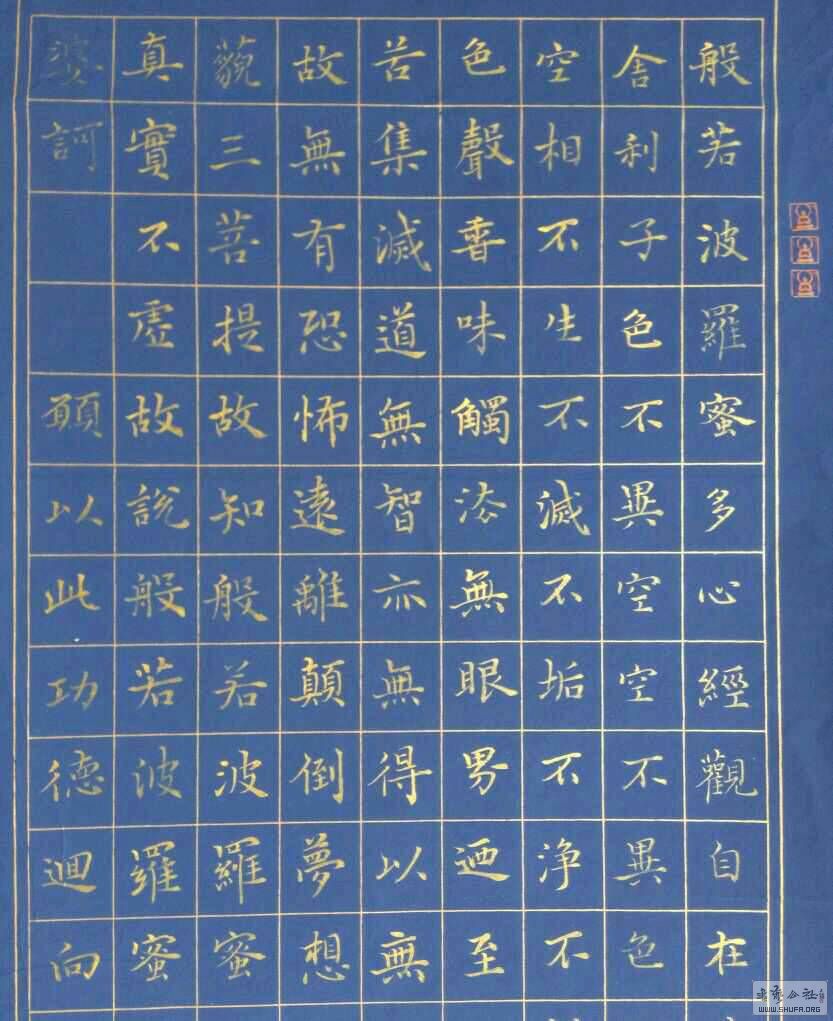 般若波羅蜜多心經觀自在
舍利子色不異空空不異色
空相不生不滅不垢不淨不
色聲香味觸法無眼界迺至
苦集滅道無智亦無得以無
故無有恐怖遠離顛倒夢想
藐三菩提故知般若波羅蜜
真實不虛故說般若波羅蜜
婆訶 願以此功德迴向
WWW.SHUFA.ORG